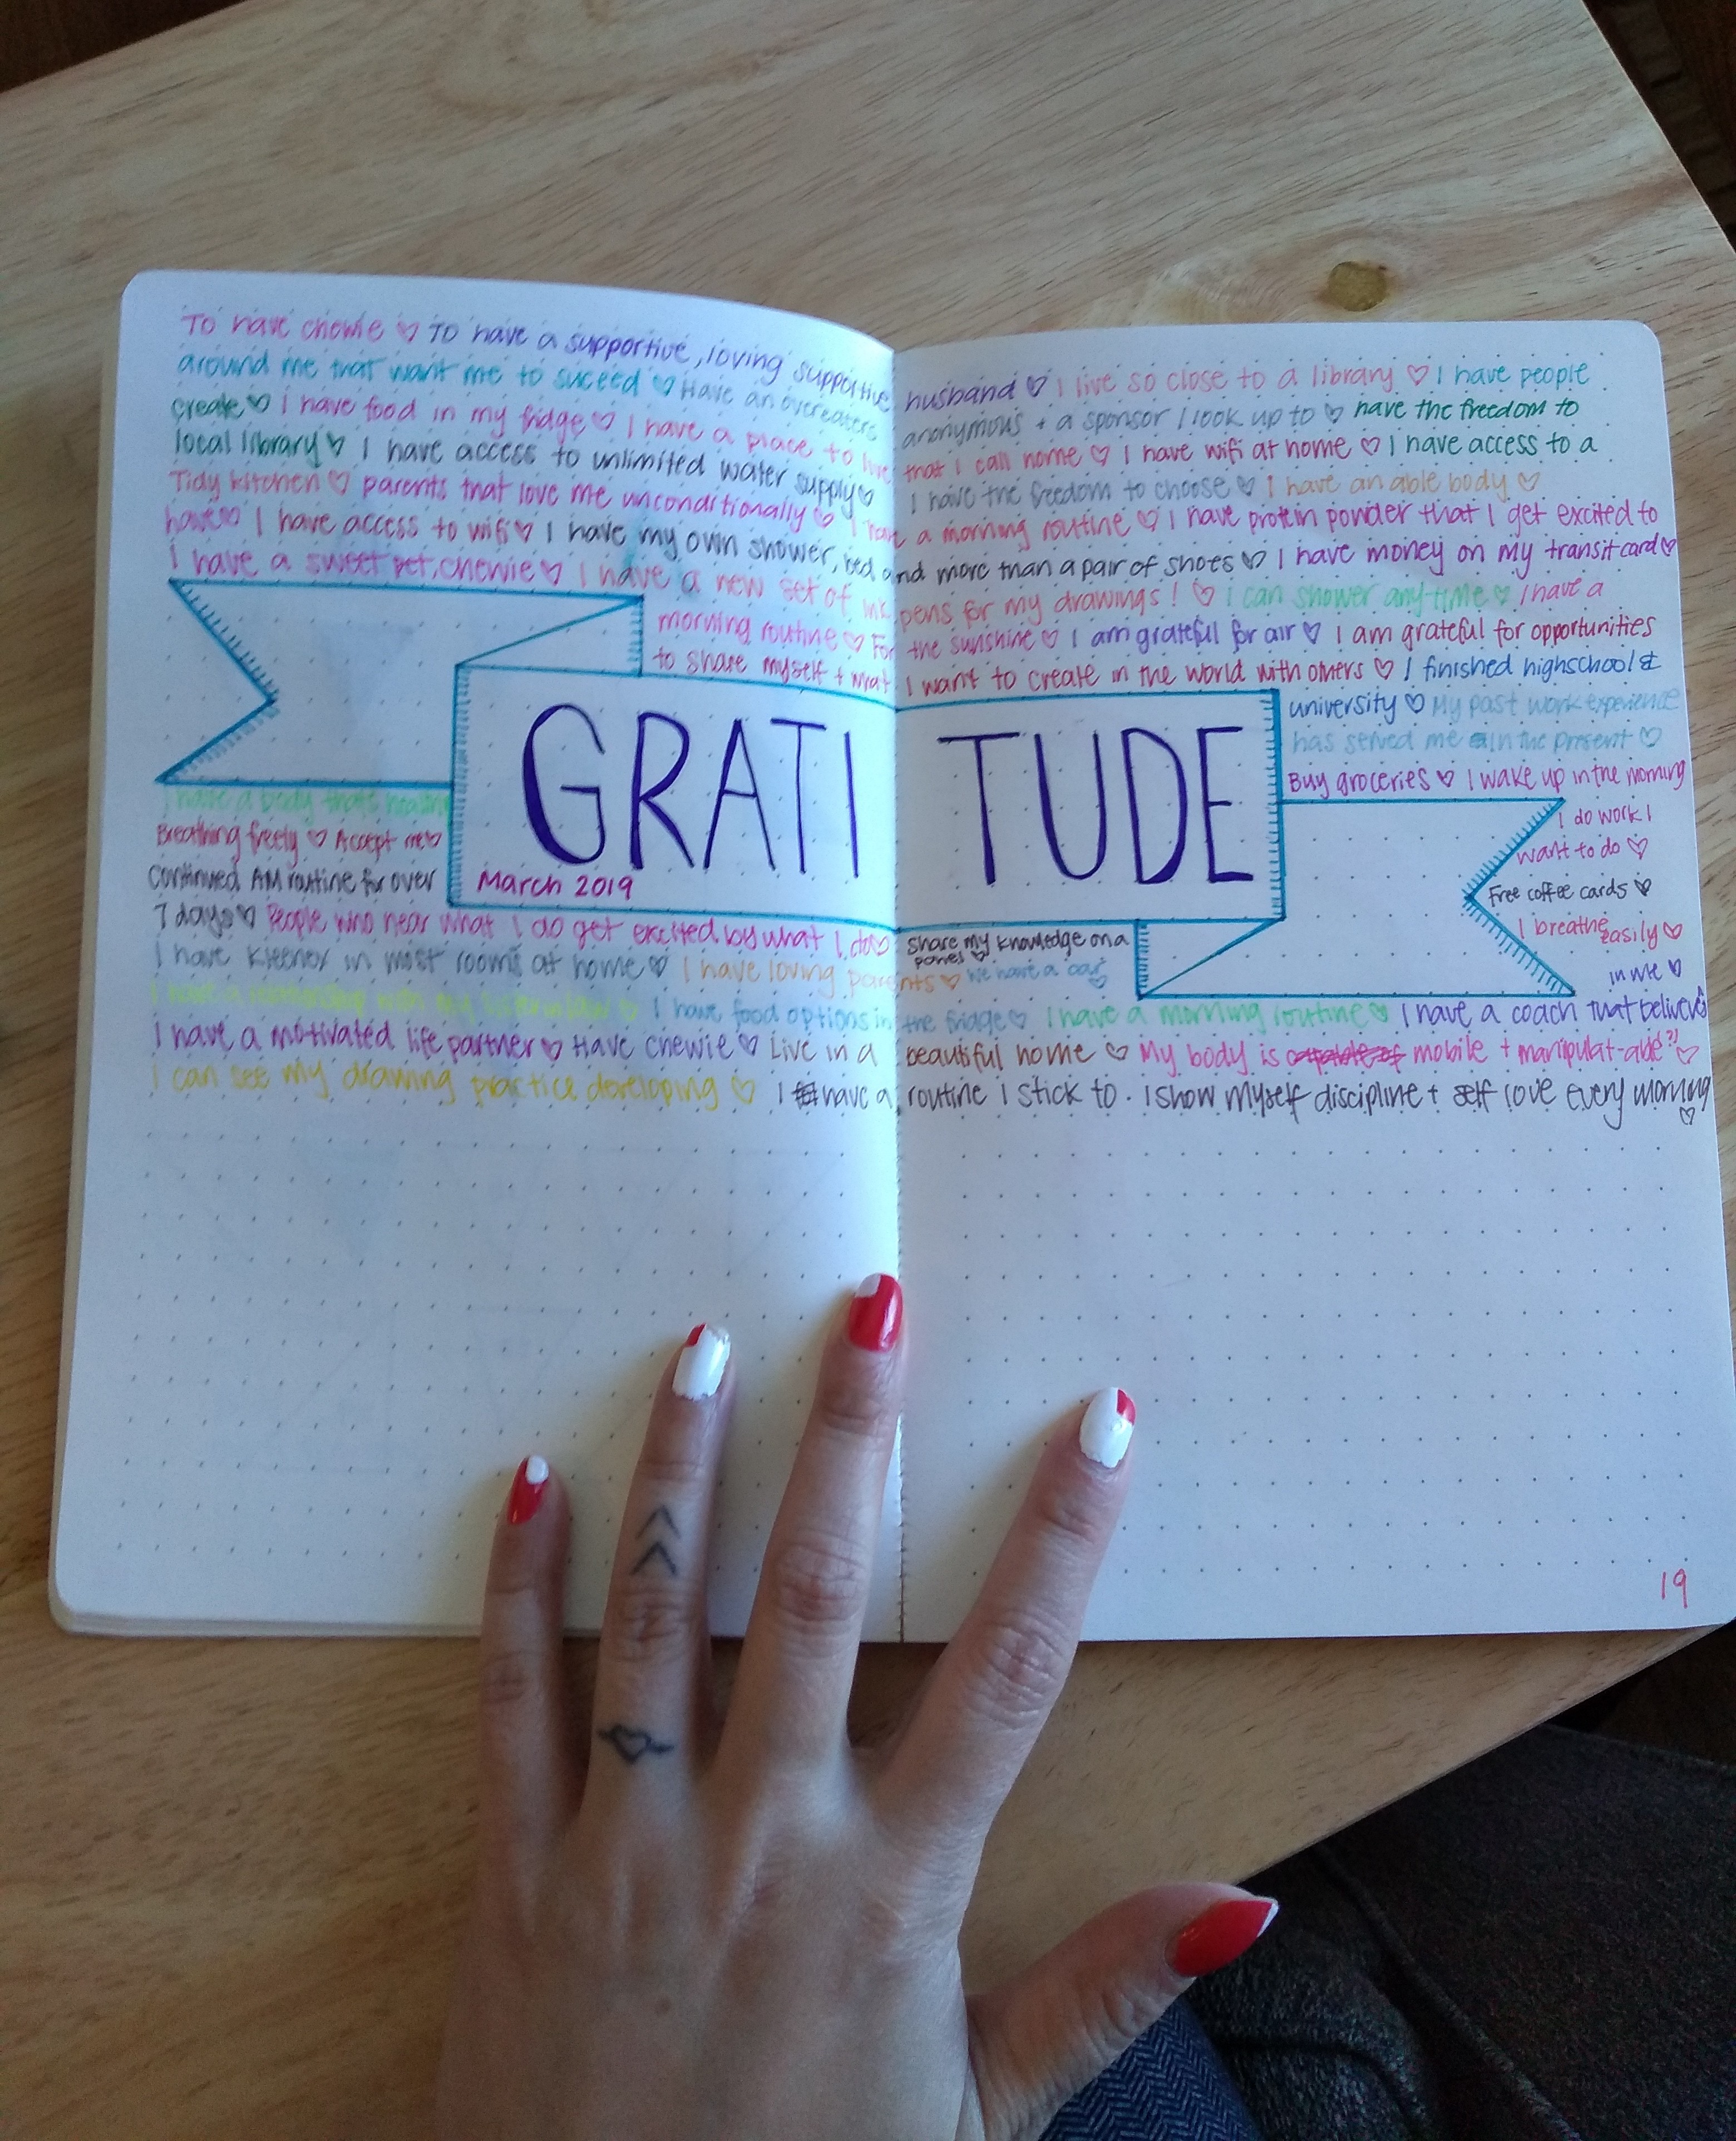 To have chewie ♡ To have a supportive, loving supportive husband ♡ I live so close to a library ♡ I have people
around me that want me to suceed ♡ Have an overeaters anonymous + a sponsor I look up to ♡ have the freedom to
create ♡ I have food in my fridge ♡ I have a place to live that I call home ♡ I have wifi at home ♡ I have access to a
local library ♡ I have access to unlimited water supply ♡ I have the freedom to choose ♡ I have an able body ♡
Tidy kitchen ♡ parents that love me unconditionally ♡ I have a morning routine ♡ I have protein powder that I get excited to
have ♡ I have access to wifi ♡ I have my own shower, bed and more than a pair of shoes ♡ I have money on my transit card ♡
I have a sweet pet, chewie ♡ I have a new set of ink pens for my drawings! ♡ I can shower any-time ♡ I have a
morning routine ♡ For the sunshine ♡ I am grateful for air ♡ I am grateful for opportunities
to share myself + what I want to create in the world with others ♡ I finished highschool &
university ♡ My past work experience
has served me in the present ♡
Buy groceries ♡ I wake up in the morning
GRATITUDE
March 2019
I have a body that's healing
Breathing freely ♡ Accept me ♡
Continued AM routine for over
I do work I
want to do ♡
Free coffee cards ♡
I breathe easily ♡
7 days ♡ People who hear what I do get excited by what I do ♡ share my knowledge on a
panel ♡
I have kleenex in most rooms at home ♡ I have loving parents ♡ We have a car ♡
in me ♡
I have a relationship with my ♡ I have food options in the fridge ♡ I have a morning routine ♡ I have a coach that believes
I have a motivated life partner ♡ Have chewie ♡ Live in a beautiful home ♡ My body is capable of mobile + manipulat-able?! ♡
I can see my drawing practice developing ♡ I have a routine I stick to. I show myself discipline + self love every morning ♡
19